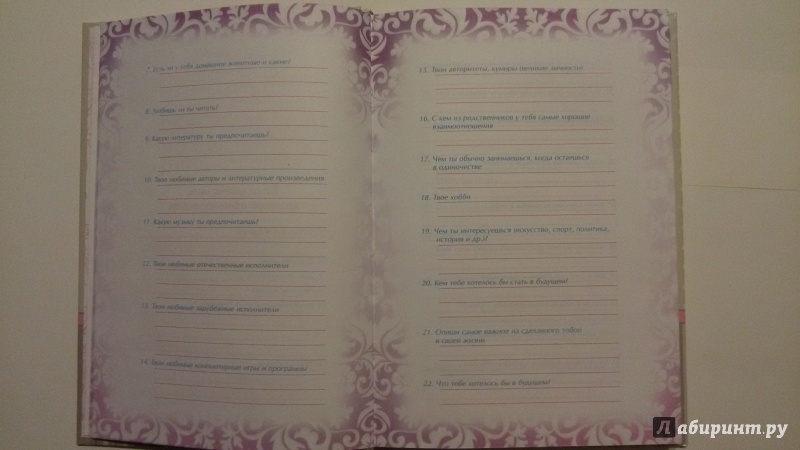 7. Есть ли у тебя домашние животные и какие?
8. Любишь ли ты читать?
9. Какую литературу ты предпочитаешь?
10. Твои любимые авторы и литературные произведения
11. Какую музыку ты предпочитаешь?
12. Твои любимые отечественные исполнители
13. Твои любимые зарубежные исполнители
14. Твои любимые компьютерные игры и программы
15. Твои авторитеты, кумиры
16. С кем из родственников у тебя самые хорошие
взаимоотношения
17. Чем ты обычно занимаешься, когда остаешься
в одиночестве
18. Твое хобби
19. Чем ты интересуешься (искусство, спорт, политика,
история и др.)?
20. Кем тебе хотелось бы стать в будущем?
21. Опиши самое важное из сделанного тобой
в своей жизни
22. Что тебе хотелось бы в будущем?
Лабиринт.ру